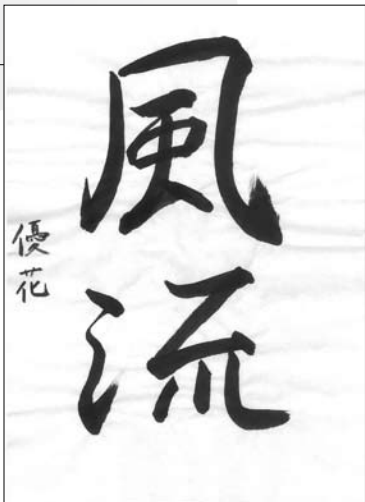 風流
優花